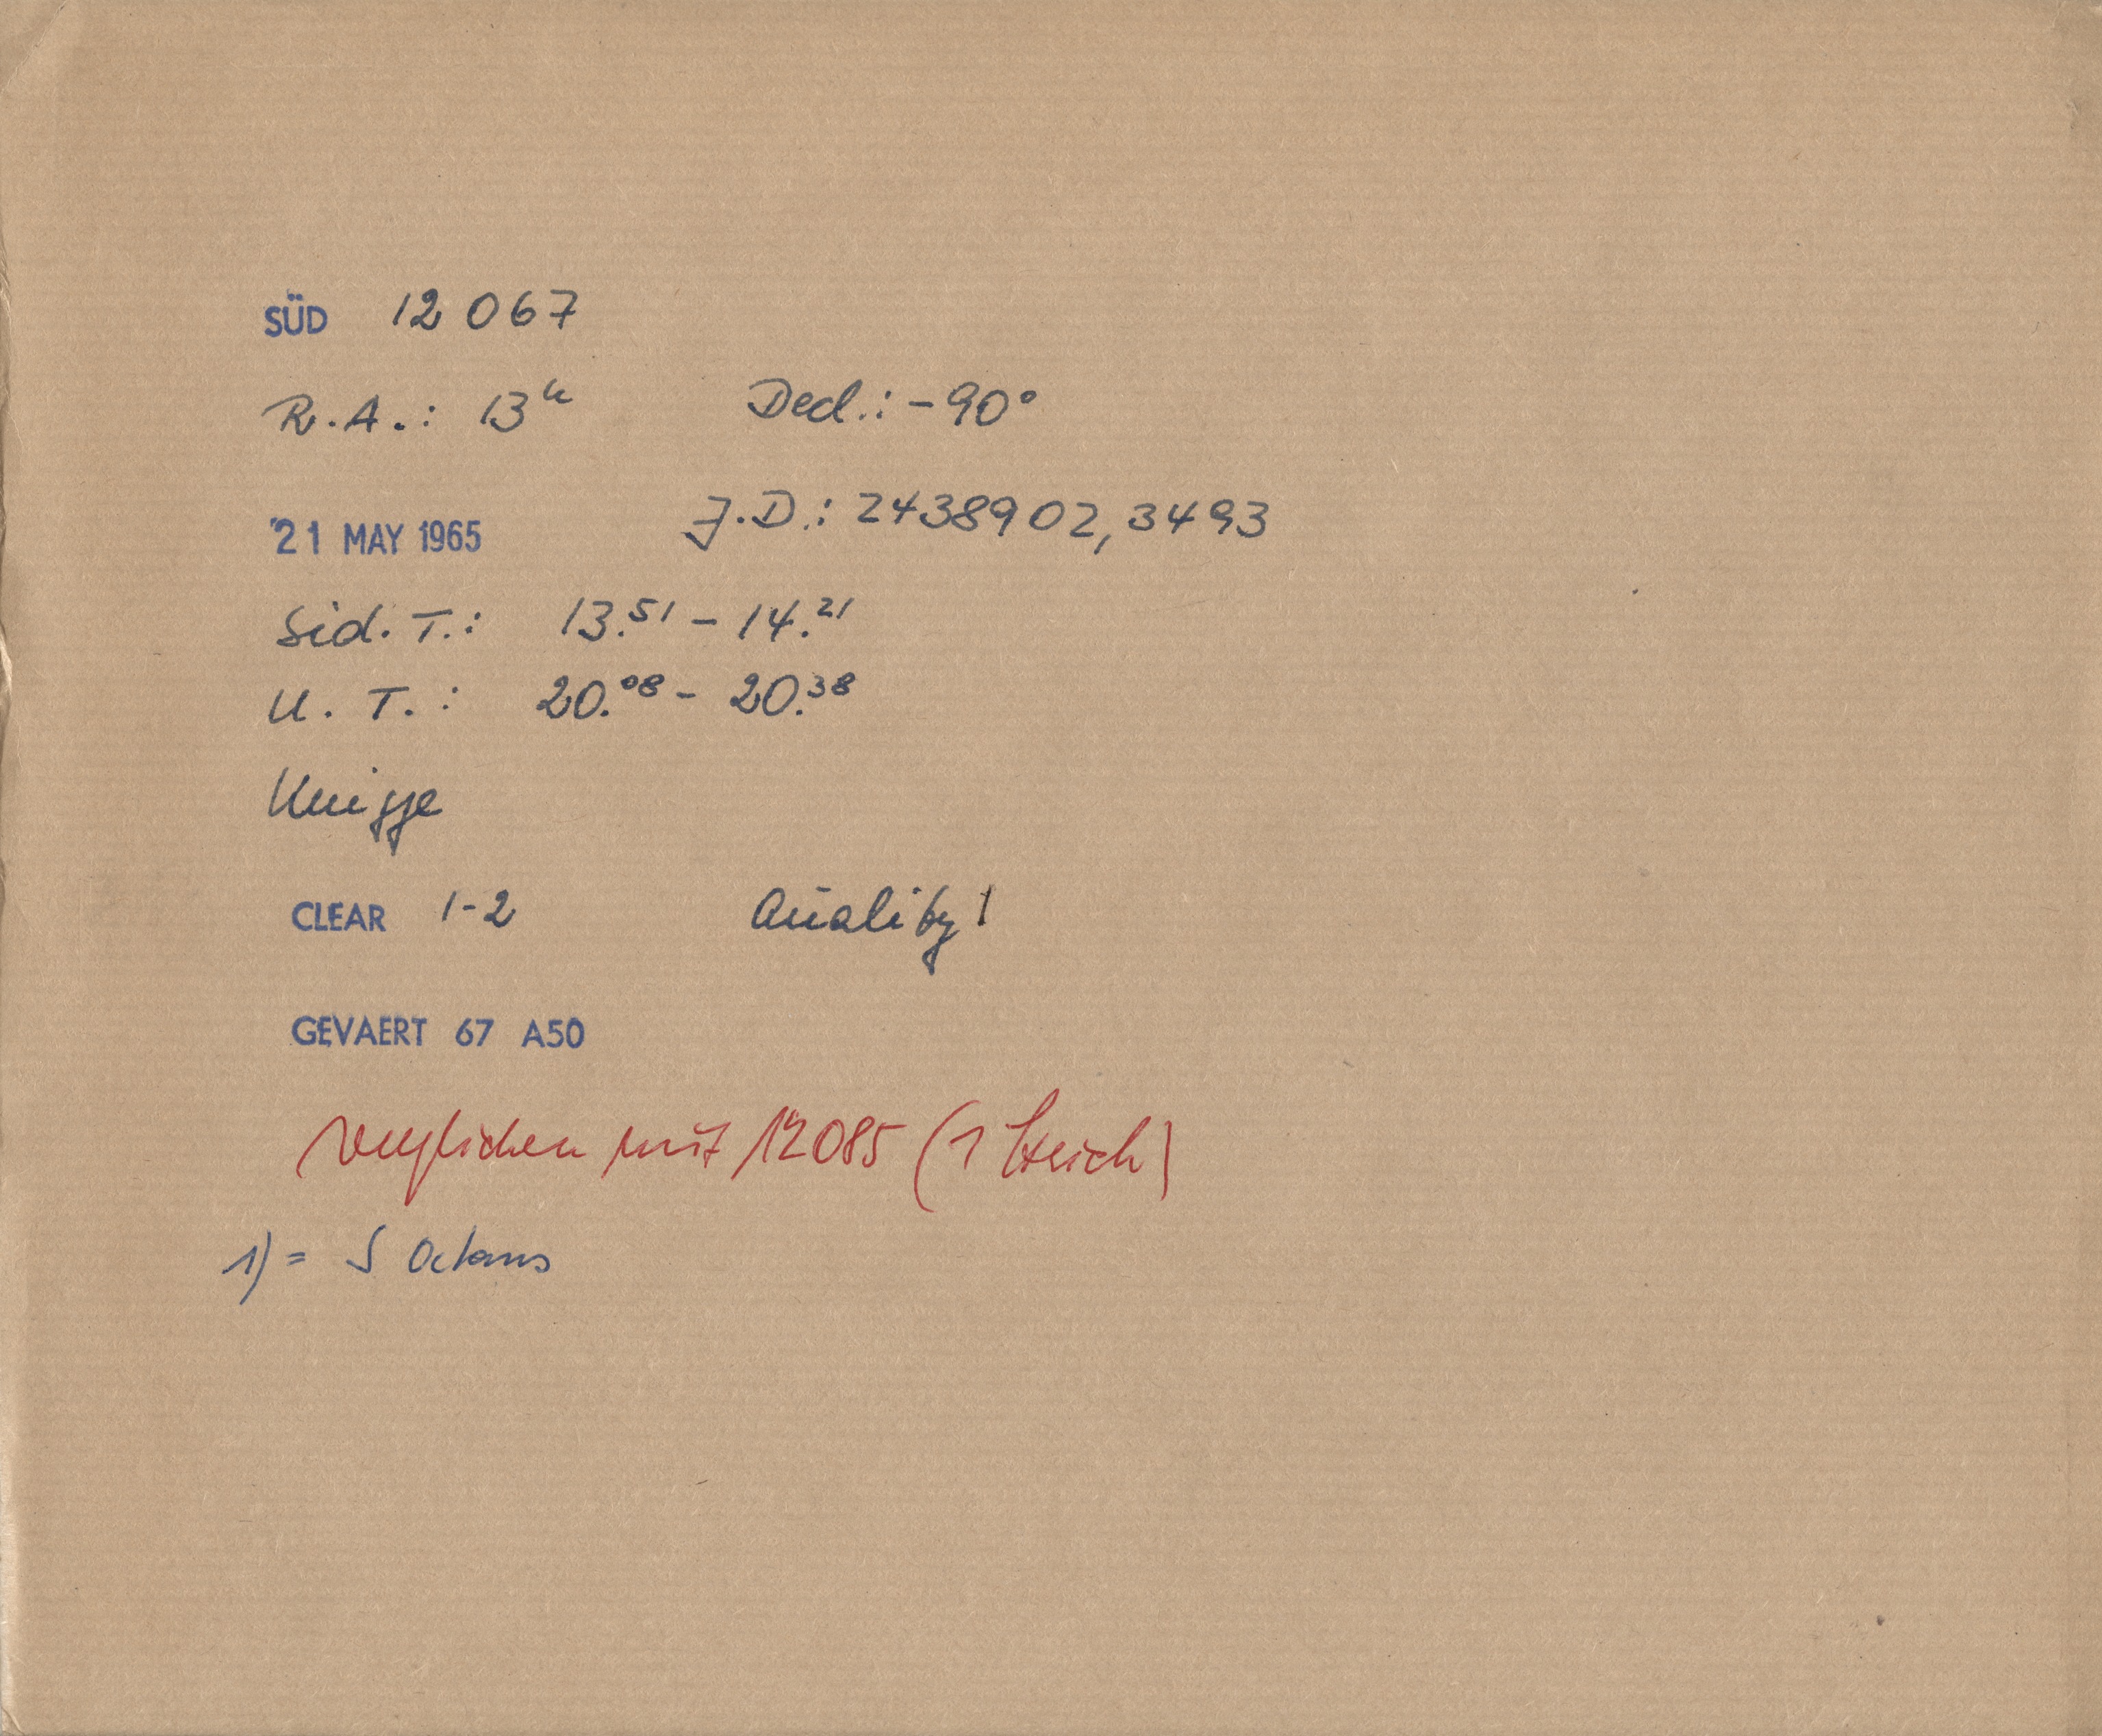 SÜD 12 067
R.A.: 13ʰ Decl.: -90°
21 MAY 1965 J.D.: 2438902,3493
Sid. T.: 13.⁵¹ - 14.²¹
U. T.: 20.⁰⁸ - 20.³⁸
Knigge
CLEAR 1-2 Quality 1
GEVAERT 67 A50
verglichen mit 12085 (1 Strich)
1) = S Octans